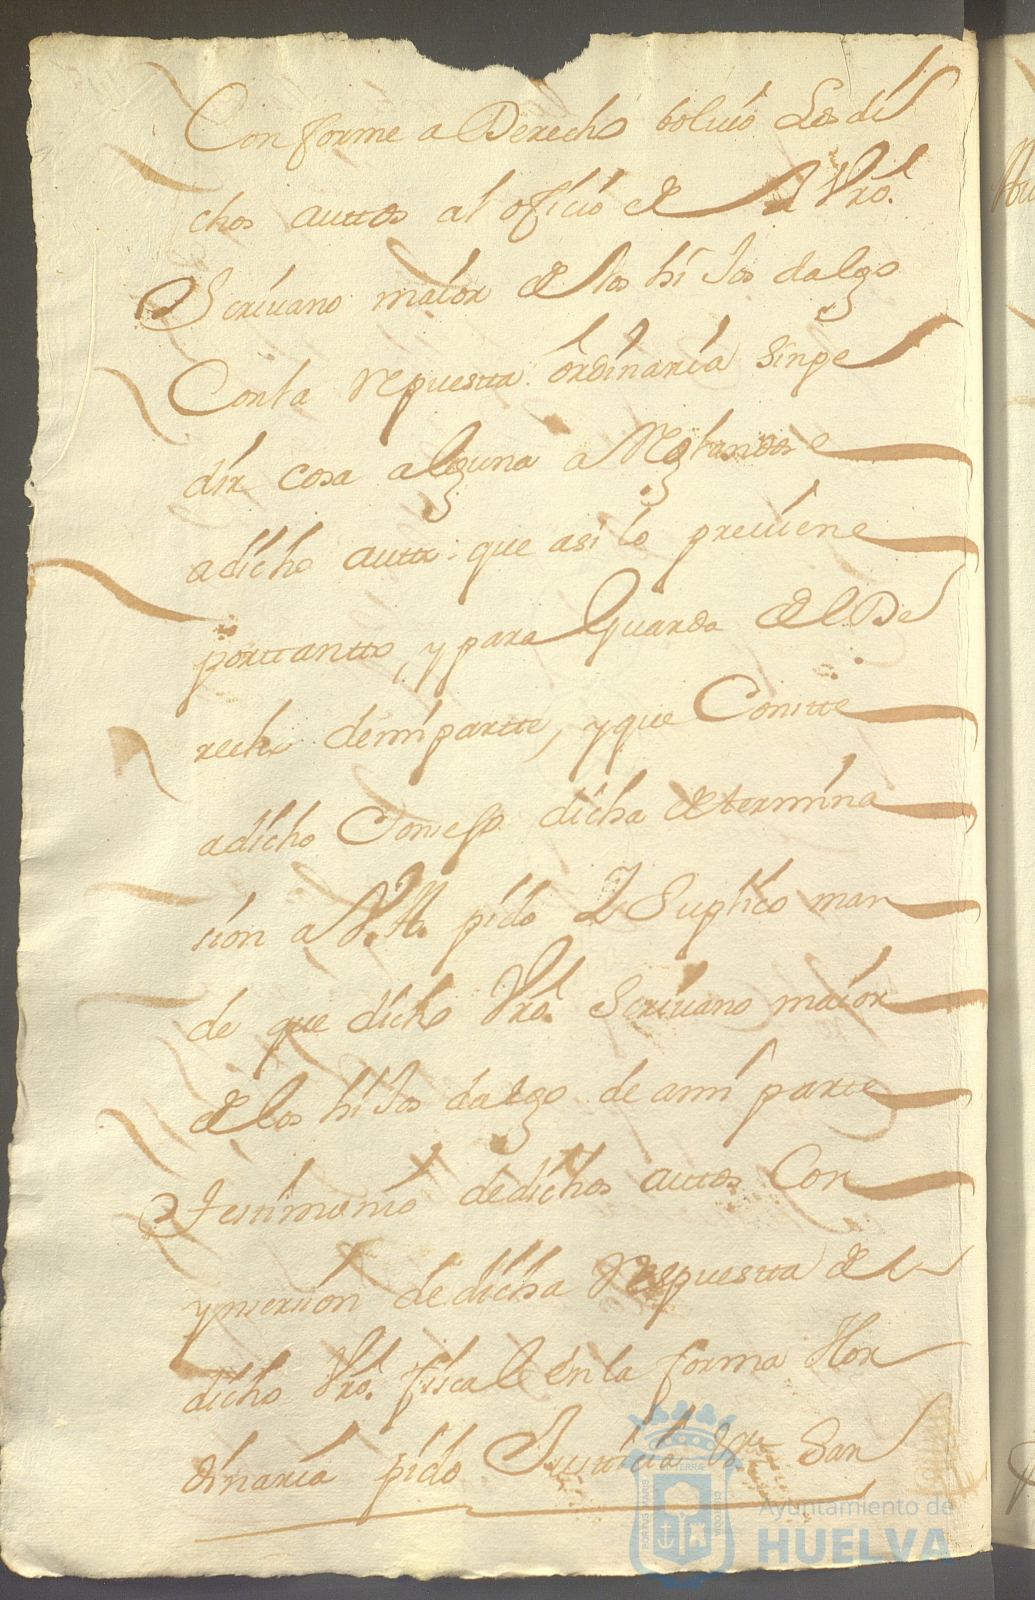 Conforme a Derecho bolvio Los di
chos auttos al oficio de Vro.
Scrivano maior de los hi Jos dalgo
Con la repuestta ordinaria sin pe
dir cosa alguna arreglandose
a dicho autto que asi lo previene
porttantto, y para Guarda del De
recho de mi partte, y que Constte
a dicho Consejo dicha determina
sion a V.A. pido Y Suplico man
de que dicho Vro. Scrivano maior
de los hi Jos dalgo de a mi partte
testimonio de dichos autos Con
ynsersion de dicha Respuestta de el
dicho Vro. fiscal en la forma Hor
dinaria pido Justticia San
Ayuntamiento de
HUELVA